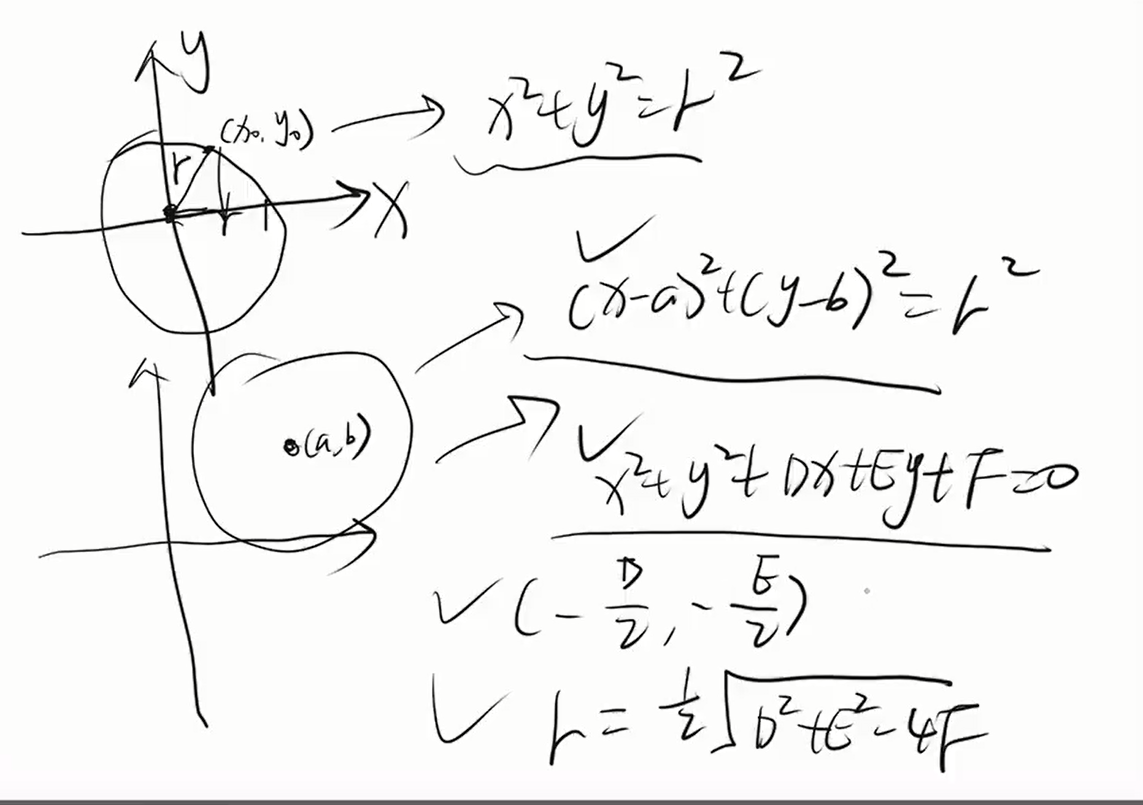 y
(x₀, y₀)
x²+y²=r²
r
x
(x-a)²+(y-b)²=r²
(a,b)
x²+y²+Dx+Ey+F=0
(-D/2, -E/2)
r=½√(D²+E²-4F)